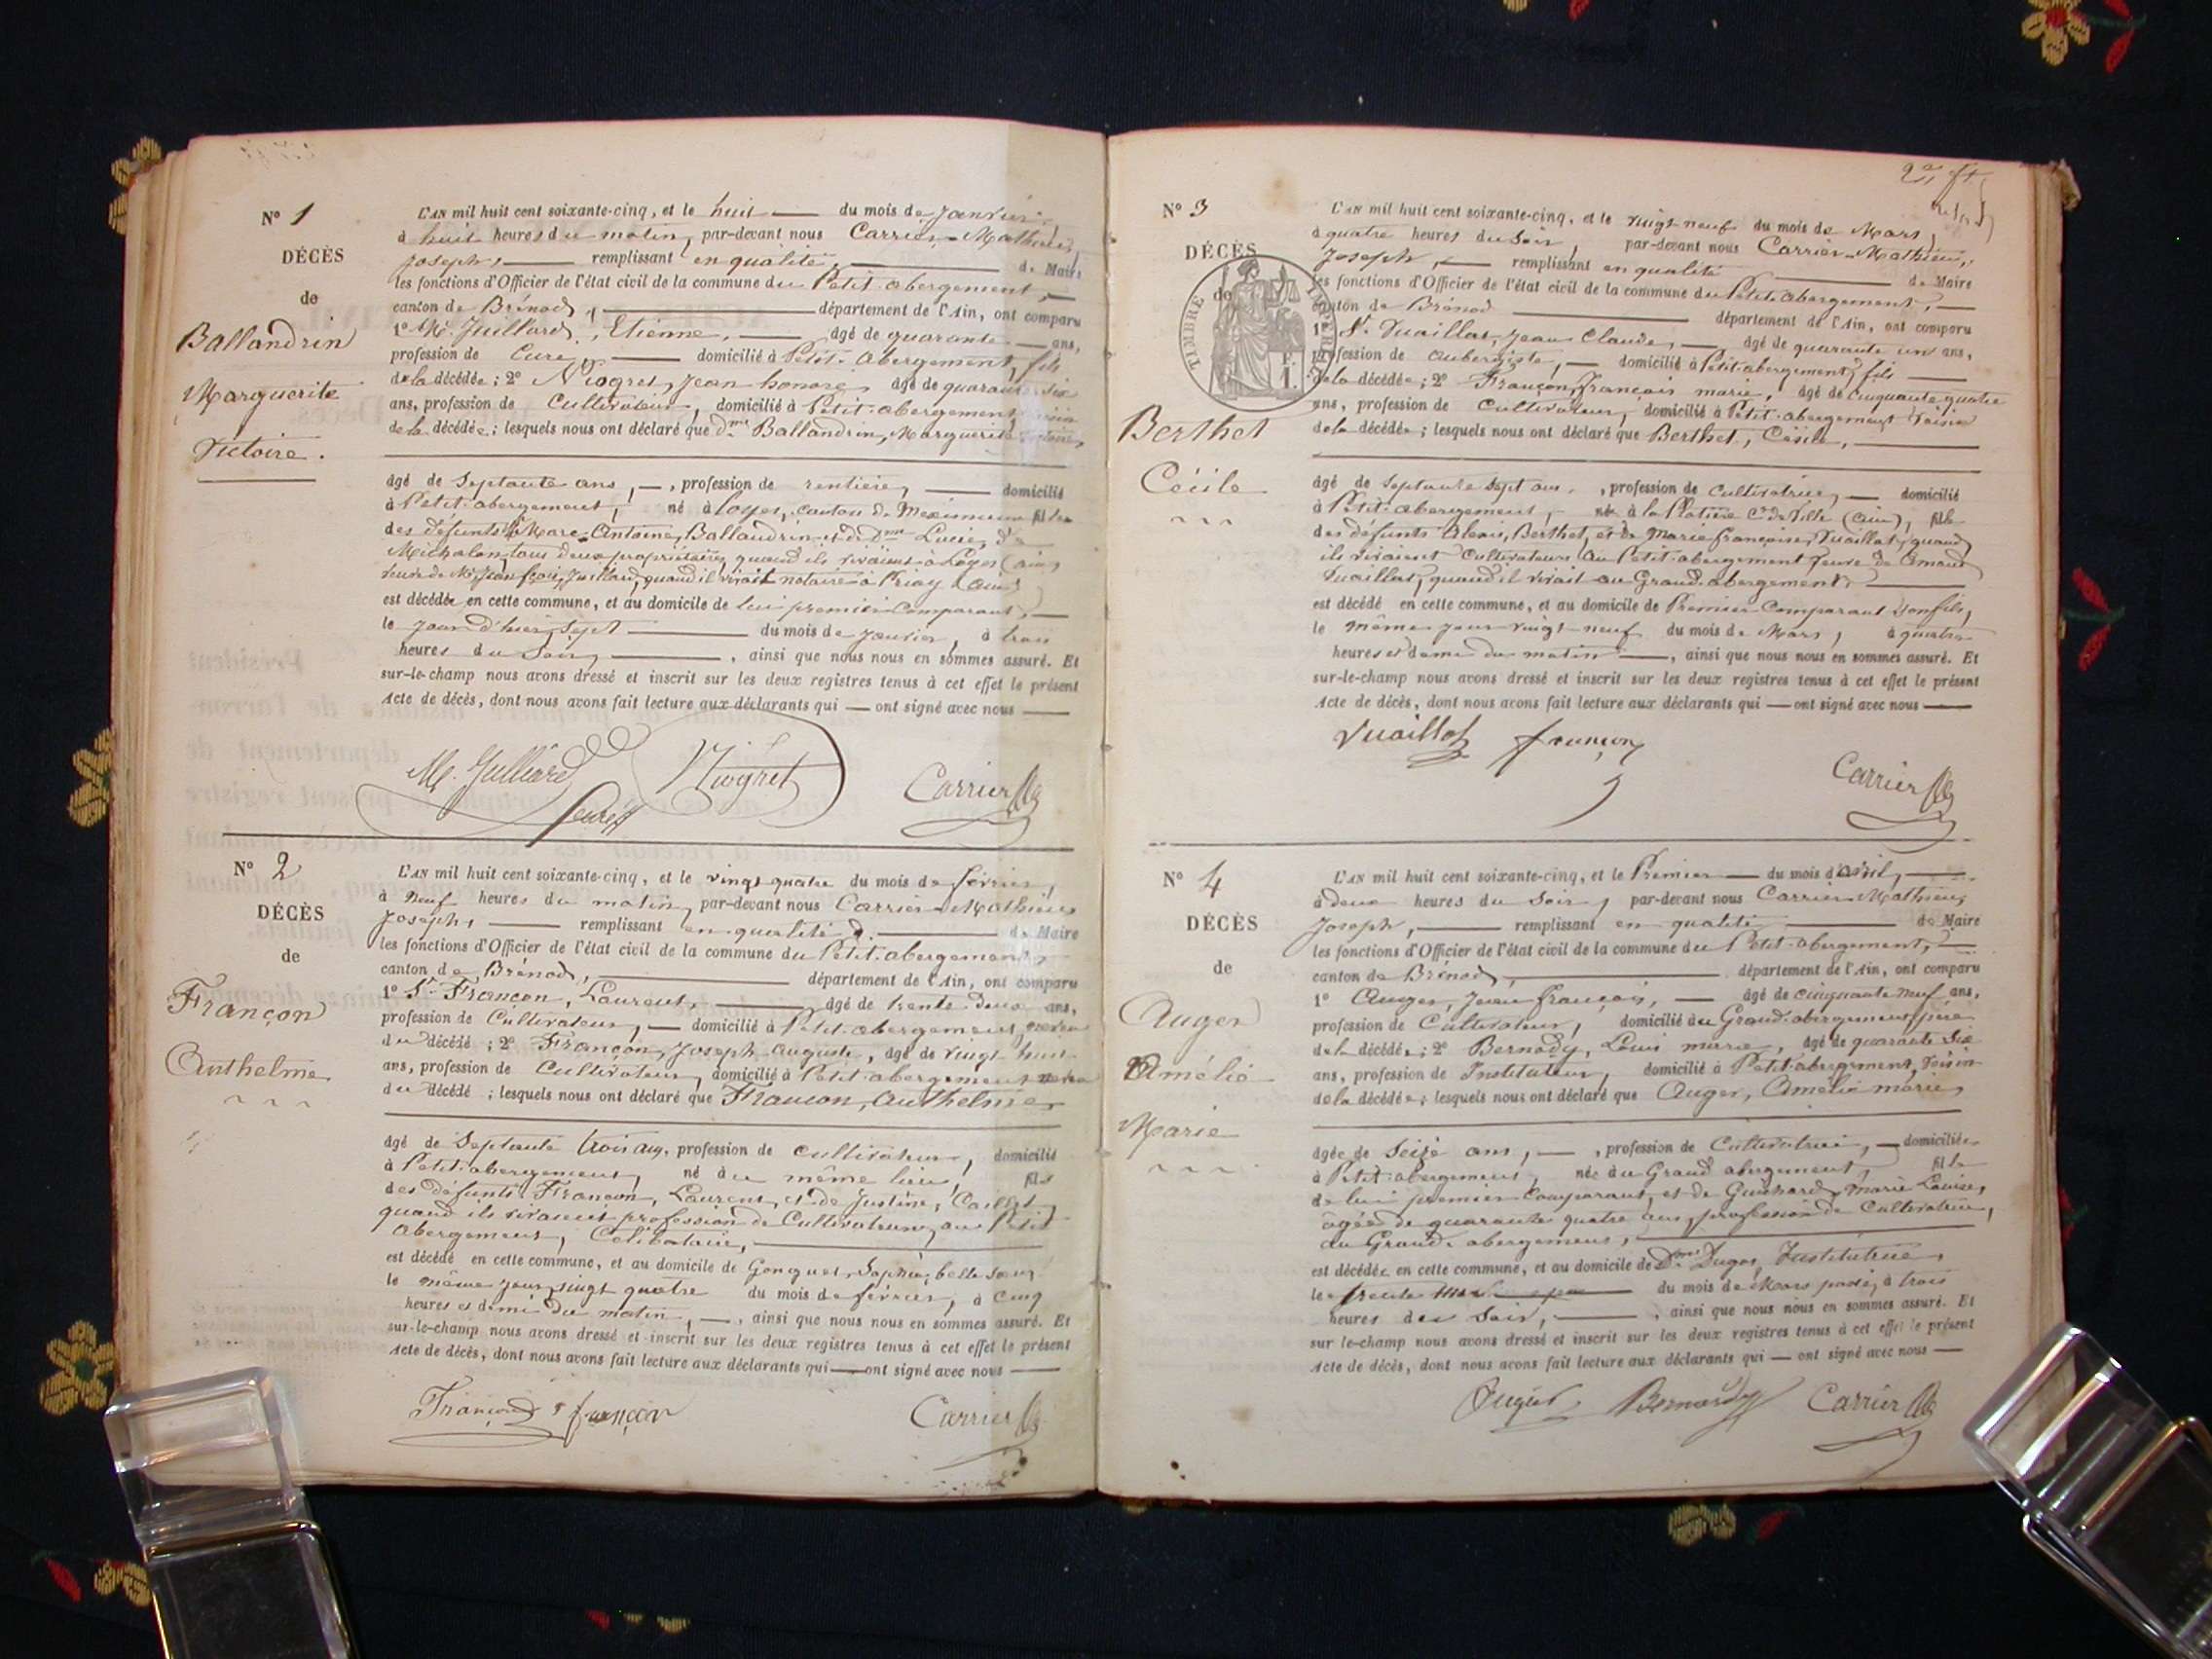 N° 1
DÉCÈS
de
Ballandrin
Marguerite
Victoire.
L'AN mil huit cent soixante-cinq, et le huit du mois de Janvier,
à huit heures du matin, par-devant nous Carrier Mathieu,
Joseph, remplissant en qualité de Maire
les fonctions d'Officier de l'état civil de la commune du Petit-abergement,
canton de Brénod, département de l'Ain, ont comparu
1° Mr. Juillard, Etienne, âgé de quarante ans,
profession de Curé, domicilié à Petit-abergement, fils
de la décédée; 2° Niogret, Jean honoré, âgé de quarante six
ans, profession de Cultivateur, domicilié à Petit-abergement voisin
de la décédée; lesquels nous ont déclaré que dme Ballandrin, Marguerite Victoire,
âgé de Septante ans, profession de rentière, domicilié
à Petit-abergement, né à Loyes, canton de Meximieux fille
des défunts Mr Marc-Antoine, Ballandrin et de Dme Lucie,
Michalon, tous deux propriétaires, quand ils vivaient à Loyes (ain)
veuve de Mr Jean Juillard, quand il vivait notaire à Priay (ain)
est décédée en cette commune, et au domicile de lui premier Comparant,
le jour d'hier sept du mois de Janvier, à trois
heures du Soir, ainsi que nous nous en sommes assuré. Et
sur-le-champ nous avons dressé et inscrit sur les deux registres tenus à cet effet le présent
Acte de décès, dont nous avons fait lecture aux déclarants qui ont signé avec nous
M. Juillard Curé Niogret Carrier
N° 2
DÉCÈS
de
Françon
Anthelme
L'AN mil huit cent soixante-cinq, et le vingt quatre du mois de février,
à Neuf heures du matin, par-devant nous Carrier Mathieu
Joseph, remplissant en qualité de Maire
les fonctions d'Officier de l'état civil de la commune du Petit-abergement,
canton de Brénod, département de l'Ain, ont comparu
1° Sr. Françon, Laurent, âgé de trente deux ans,
profession de Cultivateur, domicilié à Petit-abergement, neveu
du décédé; 2° Françon, Joseph Auguste, âgé de vingt huit
ans, profession de Cultivateur, domicilié à Petit-abergement neveu
du décédé; lesquels nous ont déclaré que Françon, Anthelme,
âgé de Septante trois ans, profession de cultivateur, domicilié
à Petit-abergement, né du même lieu, fils
des défunts Françon, Laurent et de Justine,
quand ils vivaient profession de Cultivateurs, au Petit
Abergement, Célibataire,
est décédé en cette commune, et au domicile de Sophie, belle soeur
le même jour, vingt quatre du mois de février, à cinq
heures et demi du matin, ainsi que nous nous en sommes assuré. Et
sur-le-champ nous avons dressé et inscrit sur les deux registres tenus à cet effet le présent
Acte de décès, dont nous avons fait lecture aux déclarants qui ont signé avec nous
Françon françon Carrier
N° 3
DÉCÈS
de
TIMBRE IMPÉRIAL
Berthet
Cécile
L'AN mil huit cent soixante-cinq, et le vingt neuf du mois de Mars,
à quatre heures du Soir, par-devant nous Carrier Mathieu,
Joseph, remplissant en qualité de Maire
les fonctions d'Officier de l'état civil de la commune du Petit-abergement,
canton de Brénod département de l'Ain, ont comparu
1° Sr. Vuaillat, Jean Claude, âgé de quarante un ans,
profession de aubergiste, domicilié à Petit-abergement, fils
de la décédée; 2° Françon, françois marie, âgé de Cinquante quatre
ans, profession de Cultivateur, domicilié à Petit-abergement voisin
de la décédée; lesquels nous ont déclaré que Berthet, Cécile,
âgé de Septante Sept ans, profession de Cultivatrice, domicilié
à Petit-abergement, né à la Platière (ain), fille
des défunts Alexis, Berthet, et de Marie françoise, Vuaillat, quand
ils vivaient Cultivateurs au Petit-abergement veuve de
Vuaillat, quand il vivait au Grand-abergement.
est décédé en cette commune, et au domicile de Premier Comparant son fils,
le même jour vingt neuf du mois de Mars, à quatre
heures et demi du matin, ainsi que nous nous en sommes assuré. Et
sur-le-champ nous avons dressé et inscrit sur les deux registres tenus à cet effet le présent
Acte de décès, dont nous avons fait lecture aux déclarants qui ont signé avec nous
Vuaillat françon
Carrier
N° 4
DÉCÈS
de
Auger
Amélie
Marie
L'AN mil huit cent soixante-cinq, et le Premier du mois d'avril,
à deux heures du Soir, par-devant nous Carrier Mathieu,
Joseph, remplissant en qualité de Maire
les fonctions d'Officier de l'état civil de la commune du Petit-abergement,
canton de Brénod, département de l'Ain, ont comparu
1° Auger, Jean françois, âgé de cinquante neuf ans,
profession de Cultivateur, domicilié au Grand-abergement, père
de la décédée; 2° Bernody, Louis marie, âgé de quarante Six
ans, profession de Instituteur, domicilié à Petit-abergement, voisin
de la décédée; lesquels nous ont déclaré que Auger, Amélie marie,
âgée de Seize ans, profession de Cultivatrice, domiciliée
à Petit-abergement, née au Grand abergement, fille
de lui premier Comparant, et de Guichard, Marie Louise,
âgée de quarante quatre ans, profession de Cultivatrice,
au Grand-abergement,
est décédée en cette commune, et au domicile de Dme Dugas, Institutrice,
le trente du mois de Mars passé, à trois
heures du Soir, ainsi que nous nous en sommes assuré. Et
sur le-champ nous avons dressé et inscrit sur les deux registres tenus à cet effet le présent
Acte de décès, dont nous avons fait lecture aux déclarants qui ont signé avec nous
Auger Bernody Carrier